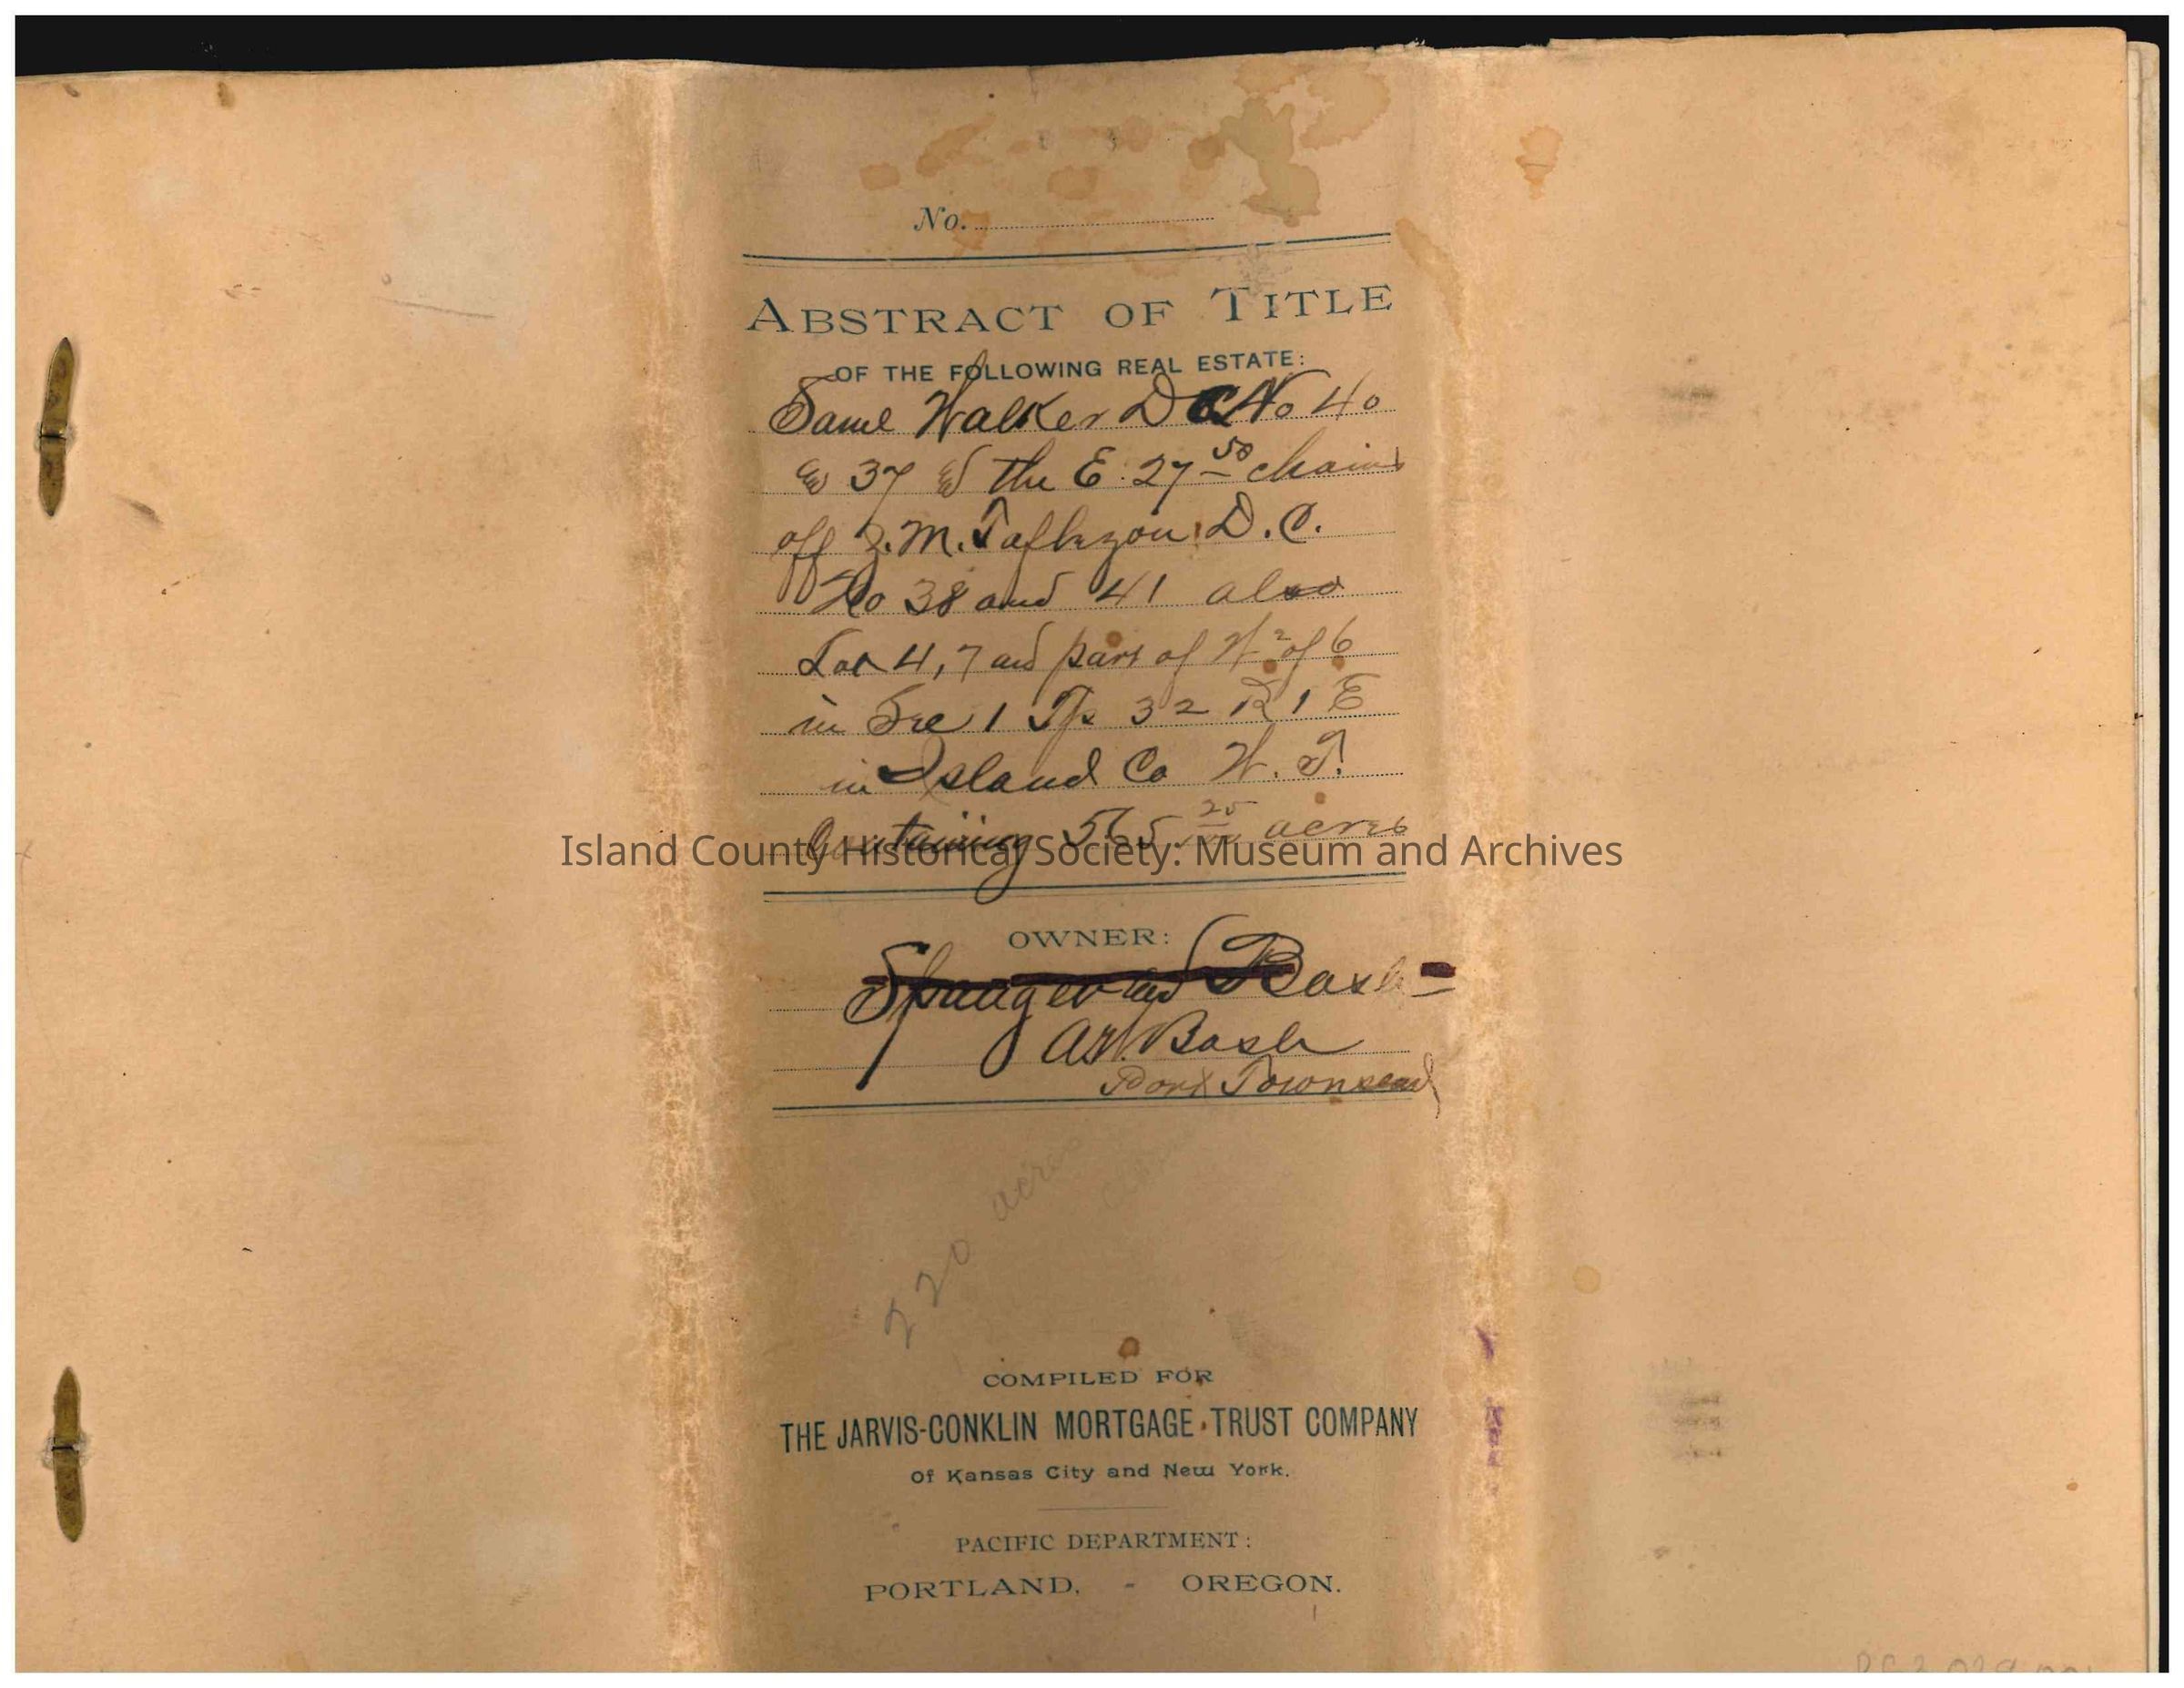 No.
ABSTRACT OF TITLE
OF THE FOLLOWING REAL ESTATE:
Saml Walker D C No 40
& 37 & the E. 27 50 chains
off Z. M. Taftezon D. C.
No 38 and 41 also
Lot 4, 7 and part of W 2 of 6
in Sec 1 Tp 32 R 1 E
in Island Co W. T.
Containing 565 25/100 acres
Island County Historical Society: Museum and Archives
OWNER:
and Bash
Bash
Port Townsend
acres
COMPILED FOR
THE JARVIS-CONKLIN MORTGAGE TRUST COMPANY
Of Kansas City and New York.
PACIFIC DEPARTMENT:
PORTLAND, - OREGON.